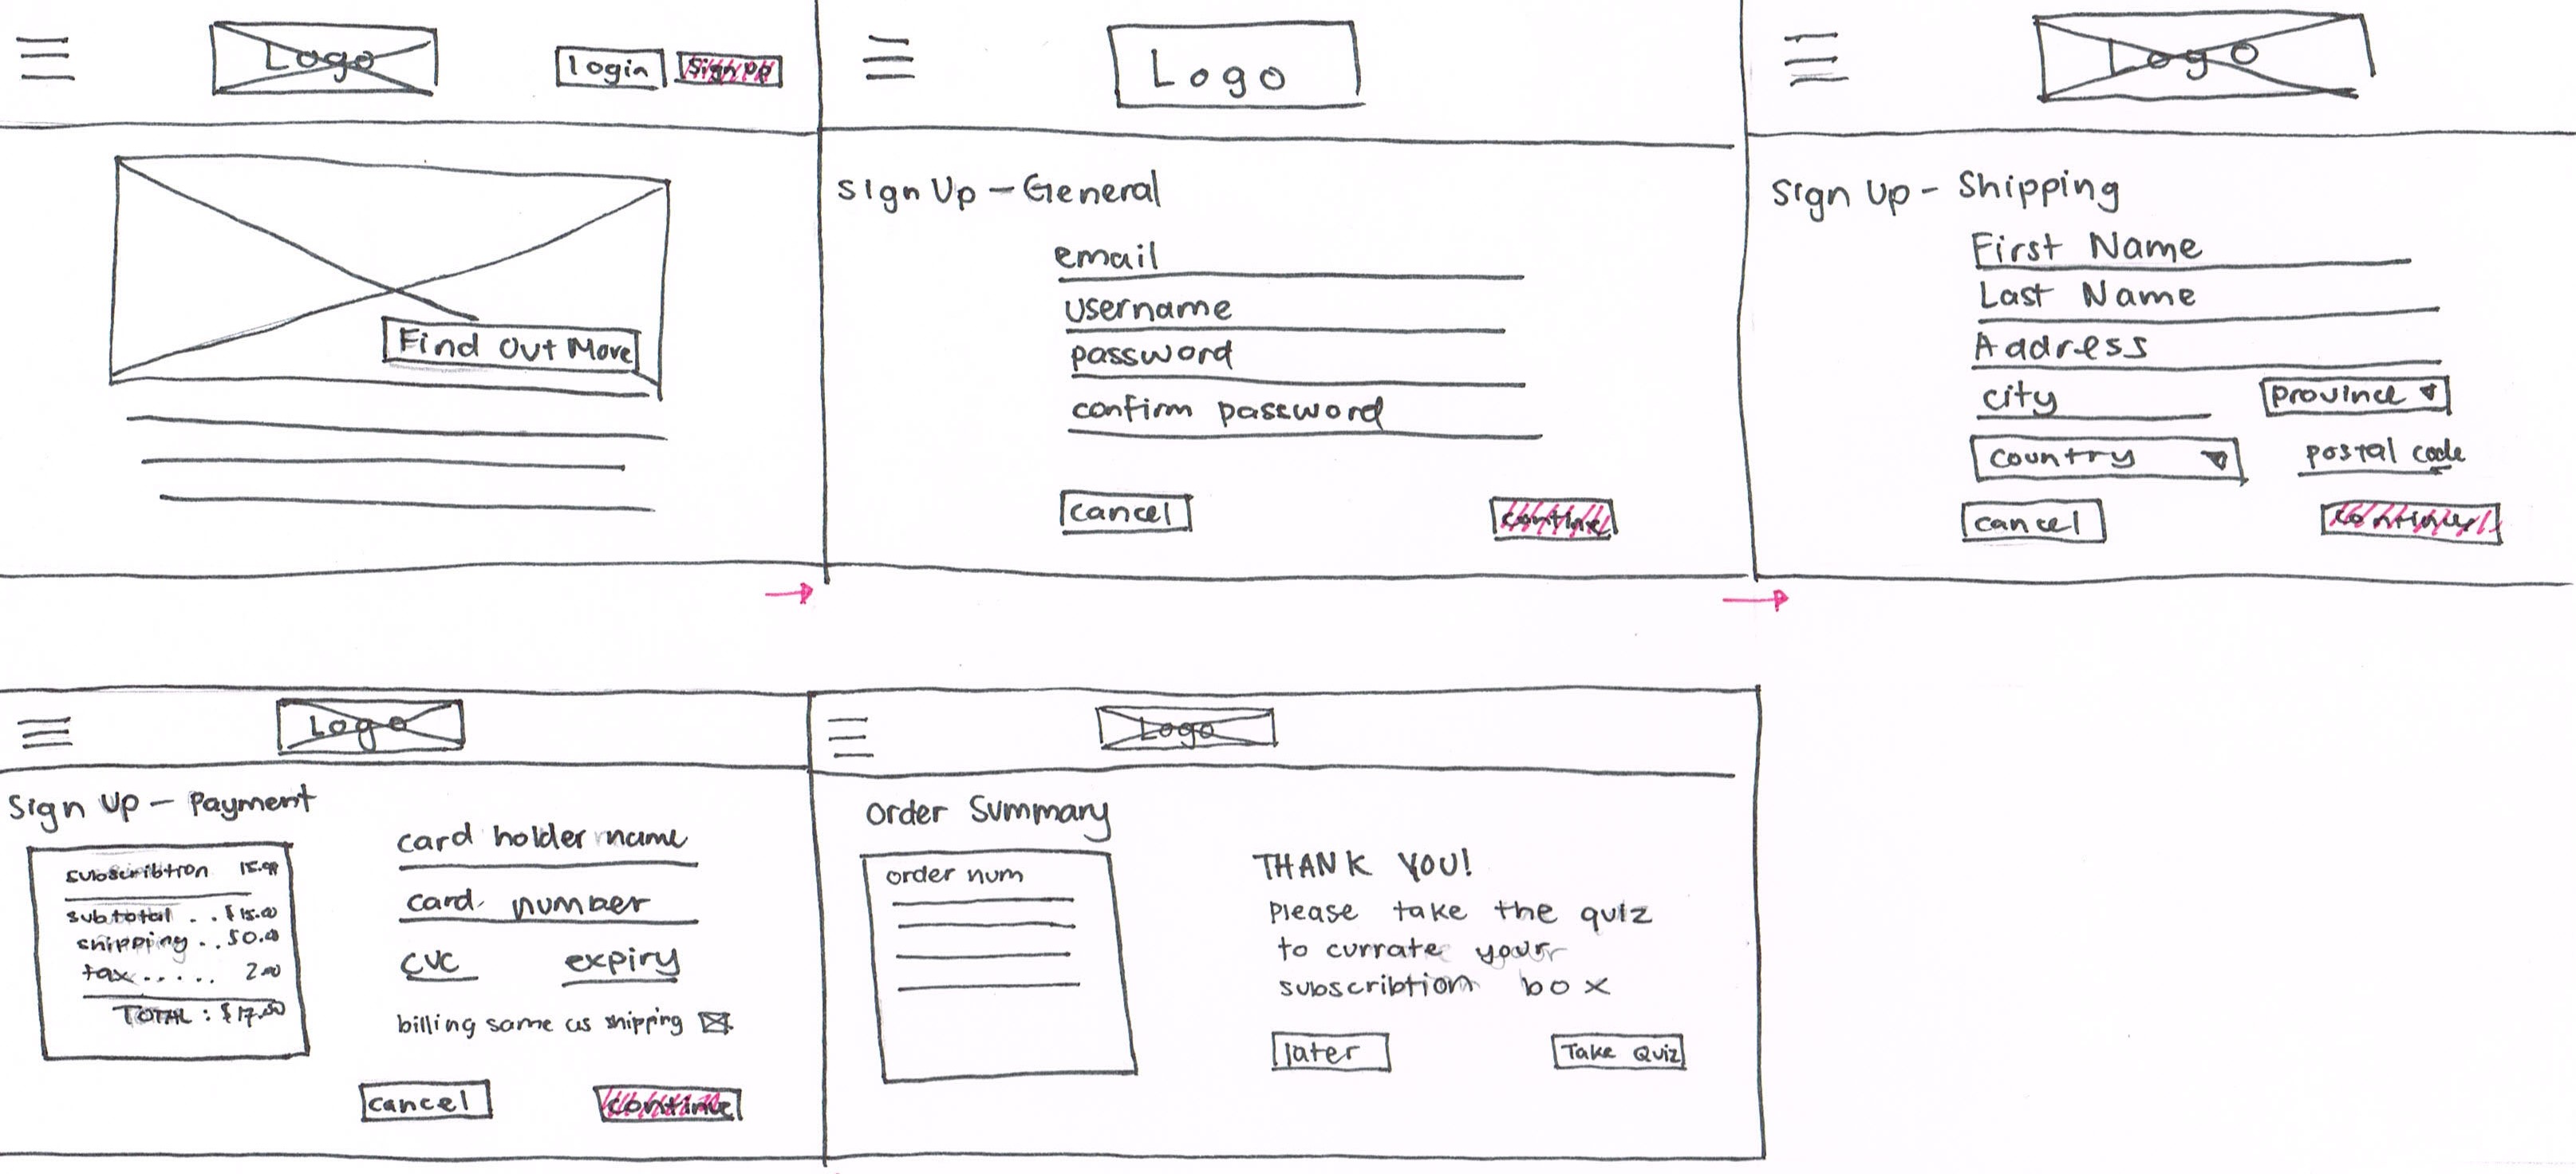 Logo
login
Sign Up
Find Out More
Logo
Sign Up - General
email
username
password
confirm password
cancel
continue
Logo
Sign Up - Shipping
First Name
Last Name
Address
city
province
country
postal code
cancel
continue
Logo
Sign Up - Payment
subscribtion 15.99
subtotal . . $15.00
shipping . . $0.00
tax . . . . . 2.00
TOTAL : $17.50
card holder name
card number
cvc
expiry
billing same as shipping
cancel
continue
Logo
Order Summary
order num
THANK YOU!
please take the quiz
to currate your
subscribtion box
later
Take Quiz